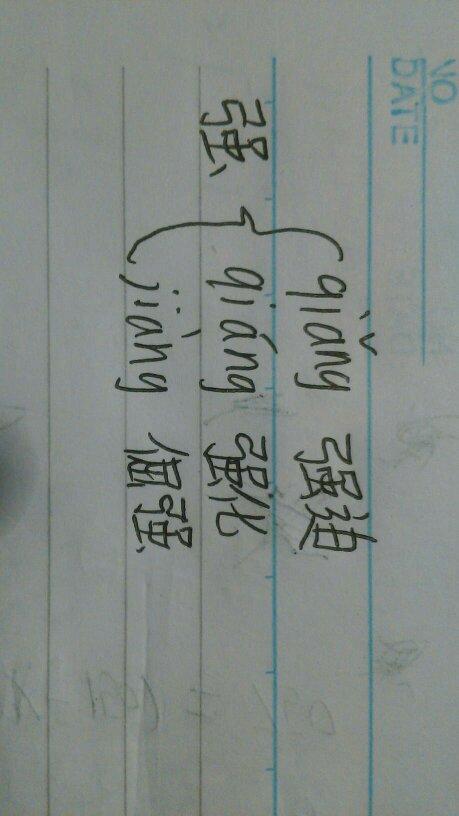 NO
DATE
qiǎng 强迫
强 qiáng 强化
jiàng 倔强